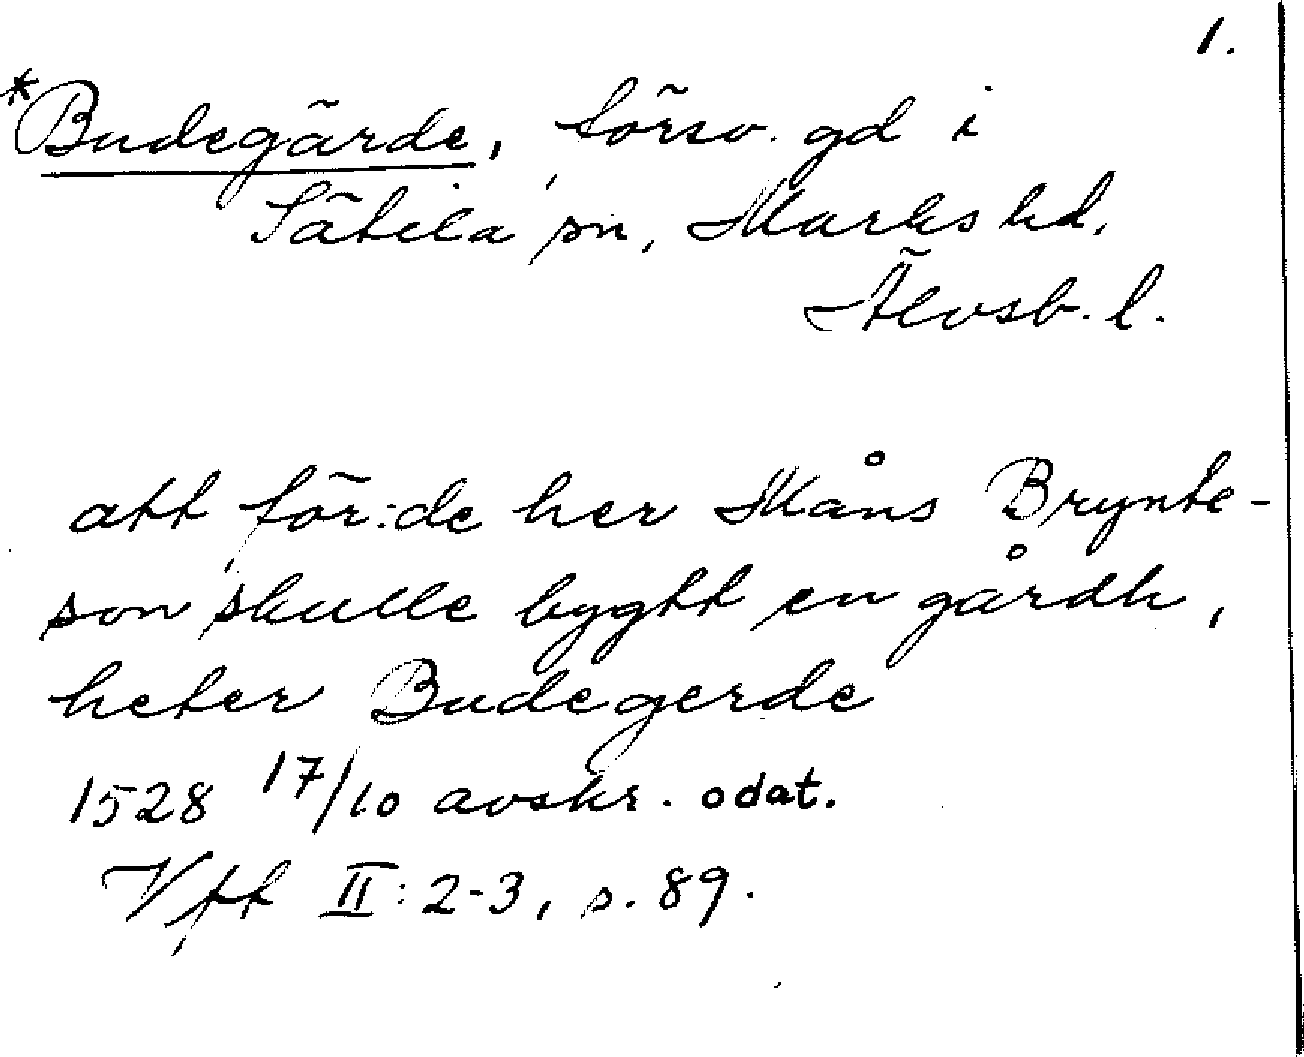 1.
*Budegärde, försv. gd i
Sätila sn, Marks hd.
Älvsb. l.
att för:de her Måns Brynte-
son skulle bygtt en gårdh,
heter Budegerde
1528 17/10 avskr. odat.
Vftt II: 2-3, s. 89.